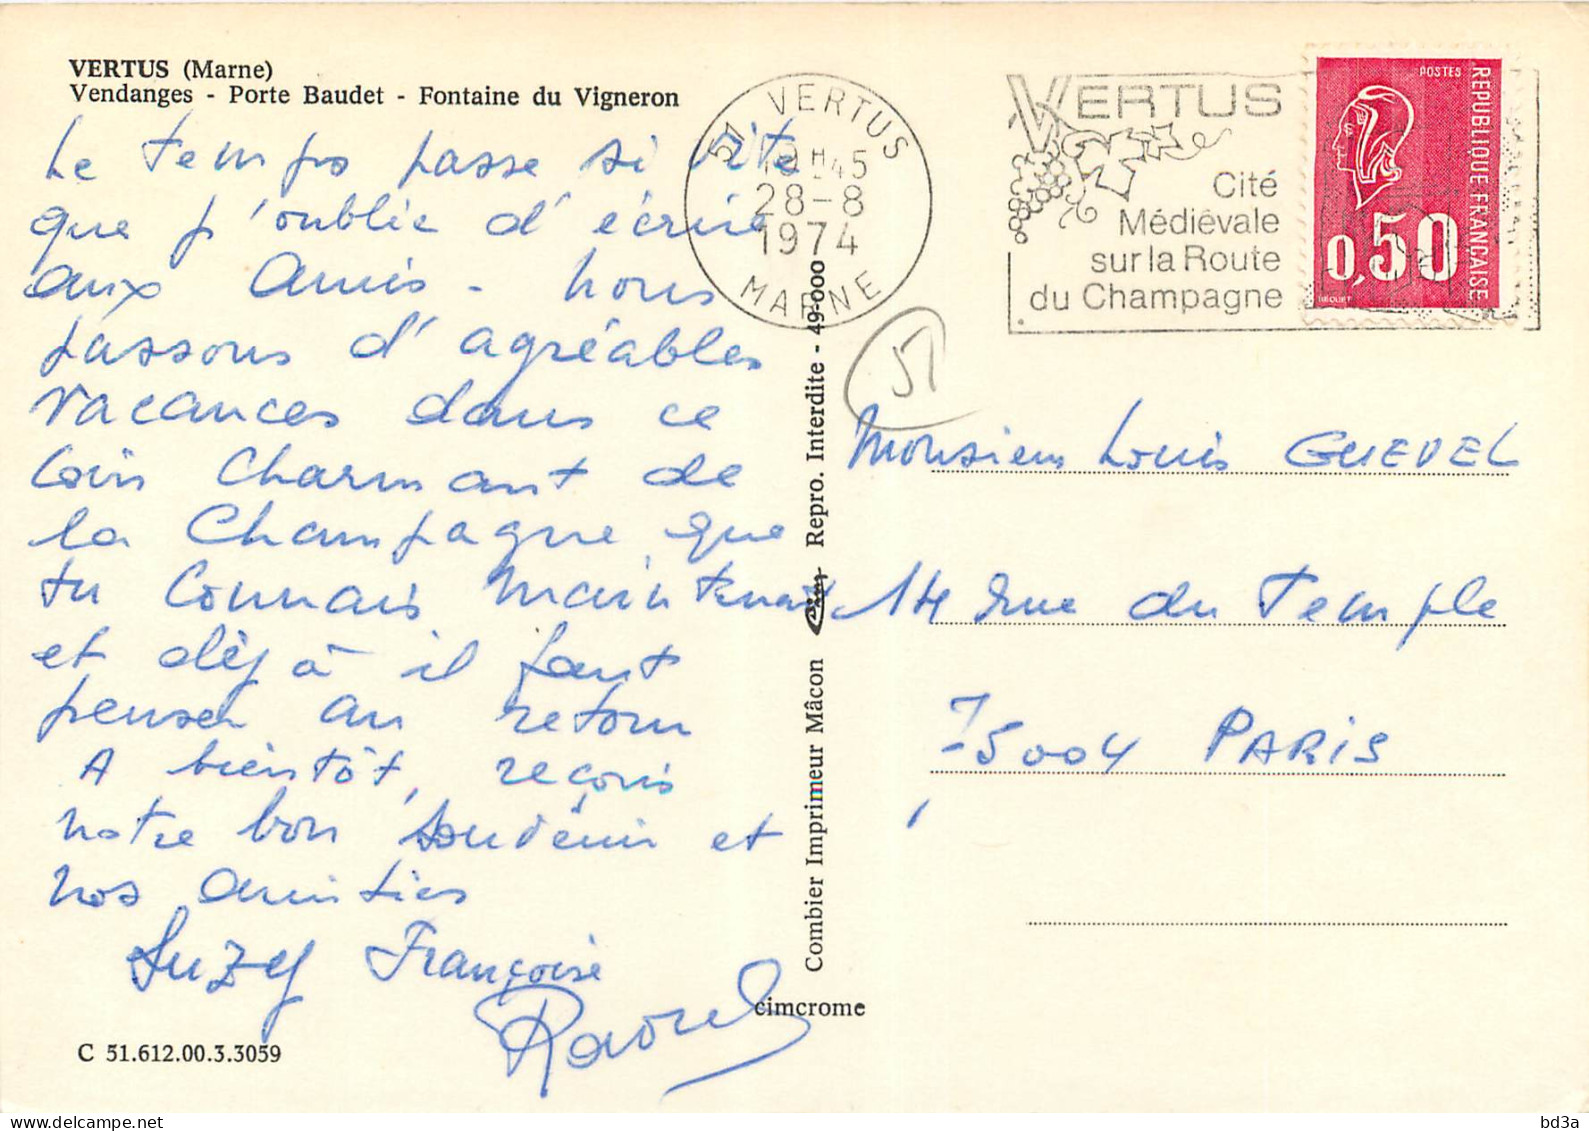 VERTUS (Marne)
Vendanges - Porte Baudet - Fontaine du Vigneron
Le temps passe si vite
que j'oublie d'écrire
aux amis - nous
passons d'agréables
vacances dans ce
coin charmant de
la Champagne que
tu connais maintenant
et déjà il faut
penser au retour
A bientôt, reçois
notre bon souvenir et
nos amitiés
Suzy Françoise
Raoul
C 51.612.00.3.3059
51 VERTUS
H 45
28-8
1974
MARNE
VERTUS
Cité
Médiévale
sur la Route
du Champagne
POSTES
REPUBLIQUE FRANCAISE
0,50
BEQUET
51
Combier Imprimeur Mâcon Cim Repro. Interdite - 49-000
cimcrome
Monsieur Louis GUEDEL
14 rue du Temple
75004 PARIS
bd3a